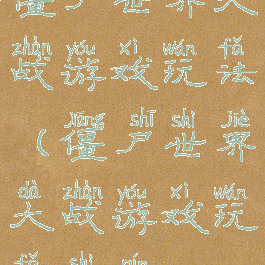 僵尸世界大
zhàn yóu xì wán fǎ
战游戏玩法
jiāng shī shì jiè
（僵尸世界
dà zhàn yóu xì wán
大战游戏玩